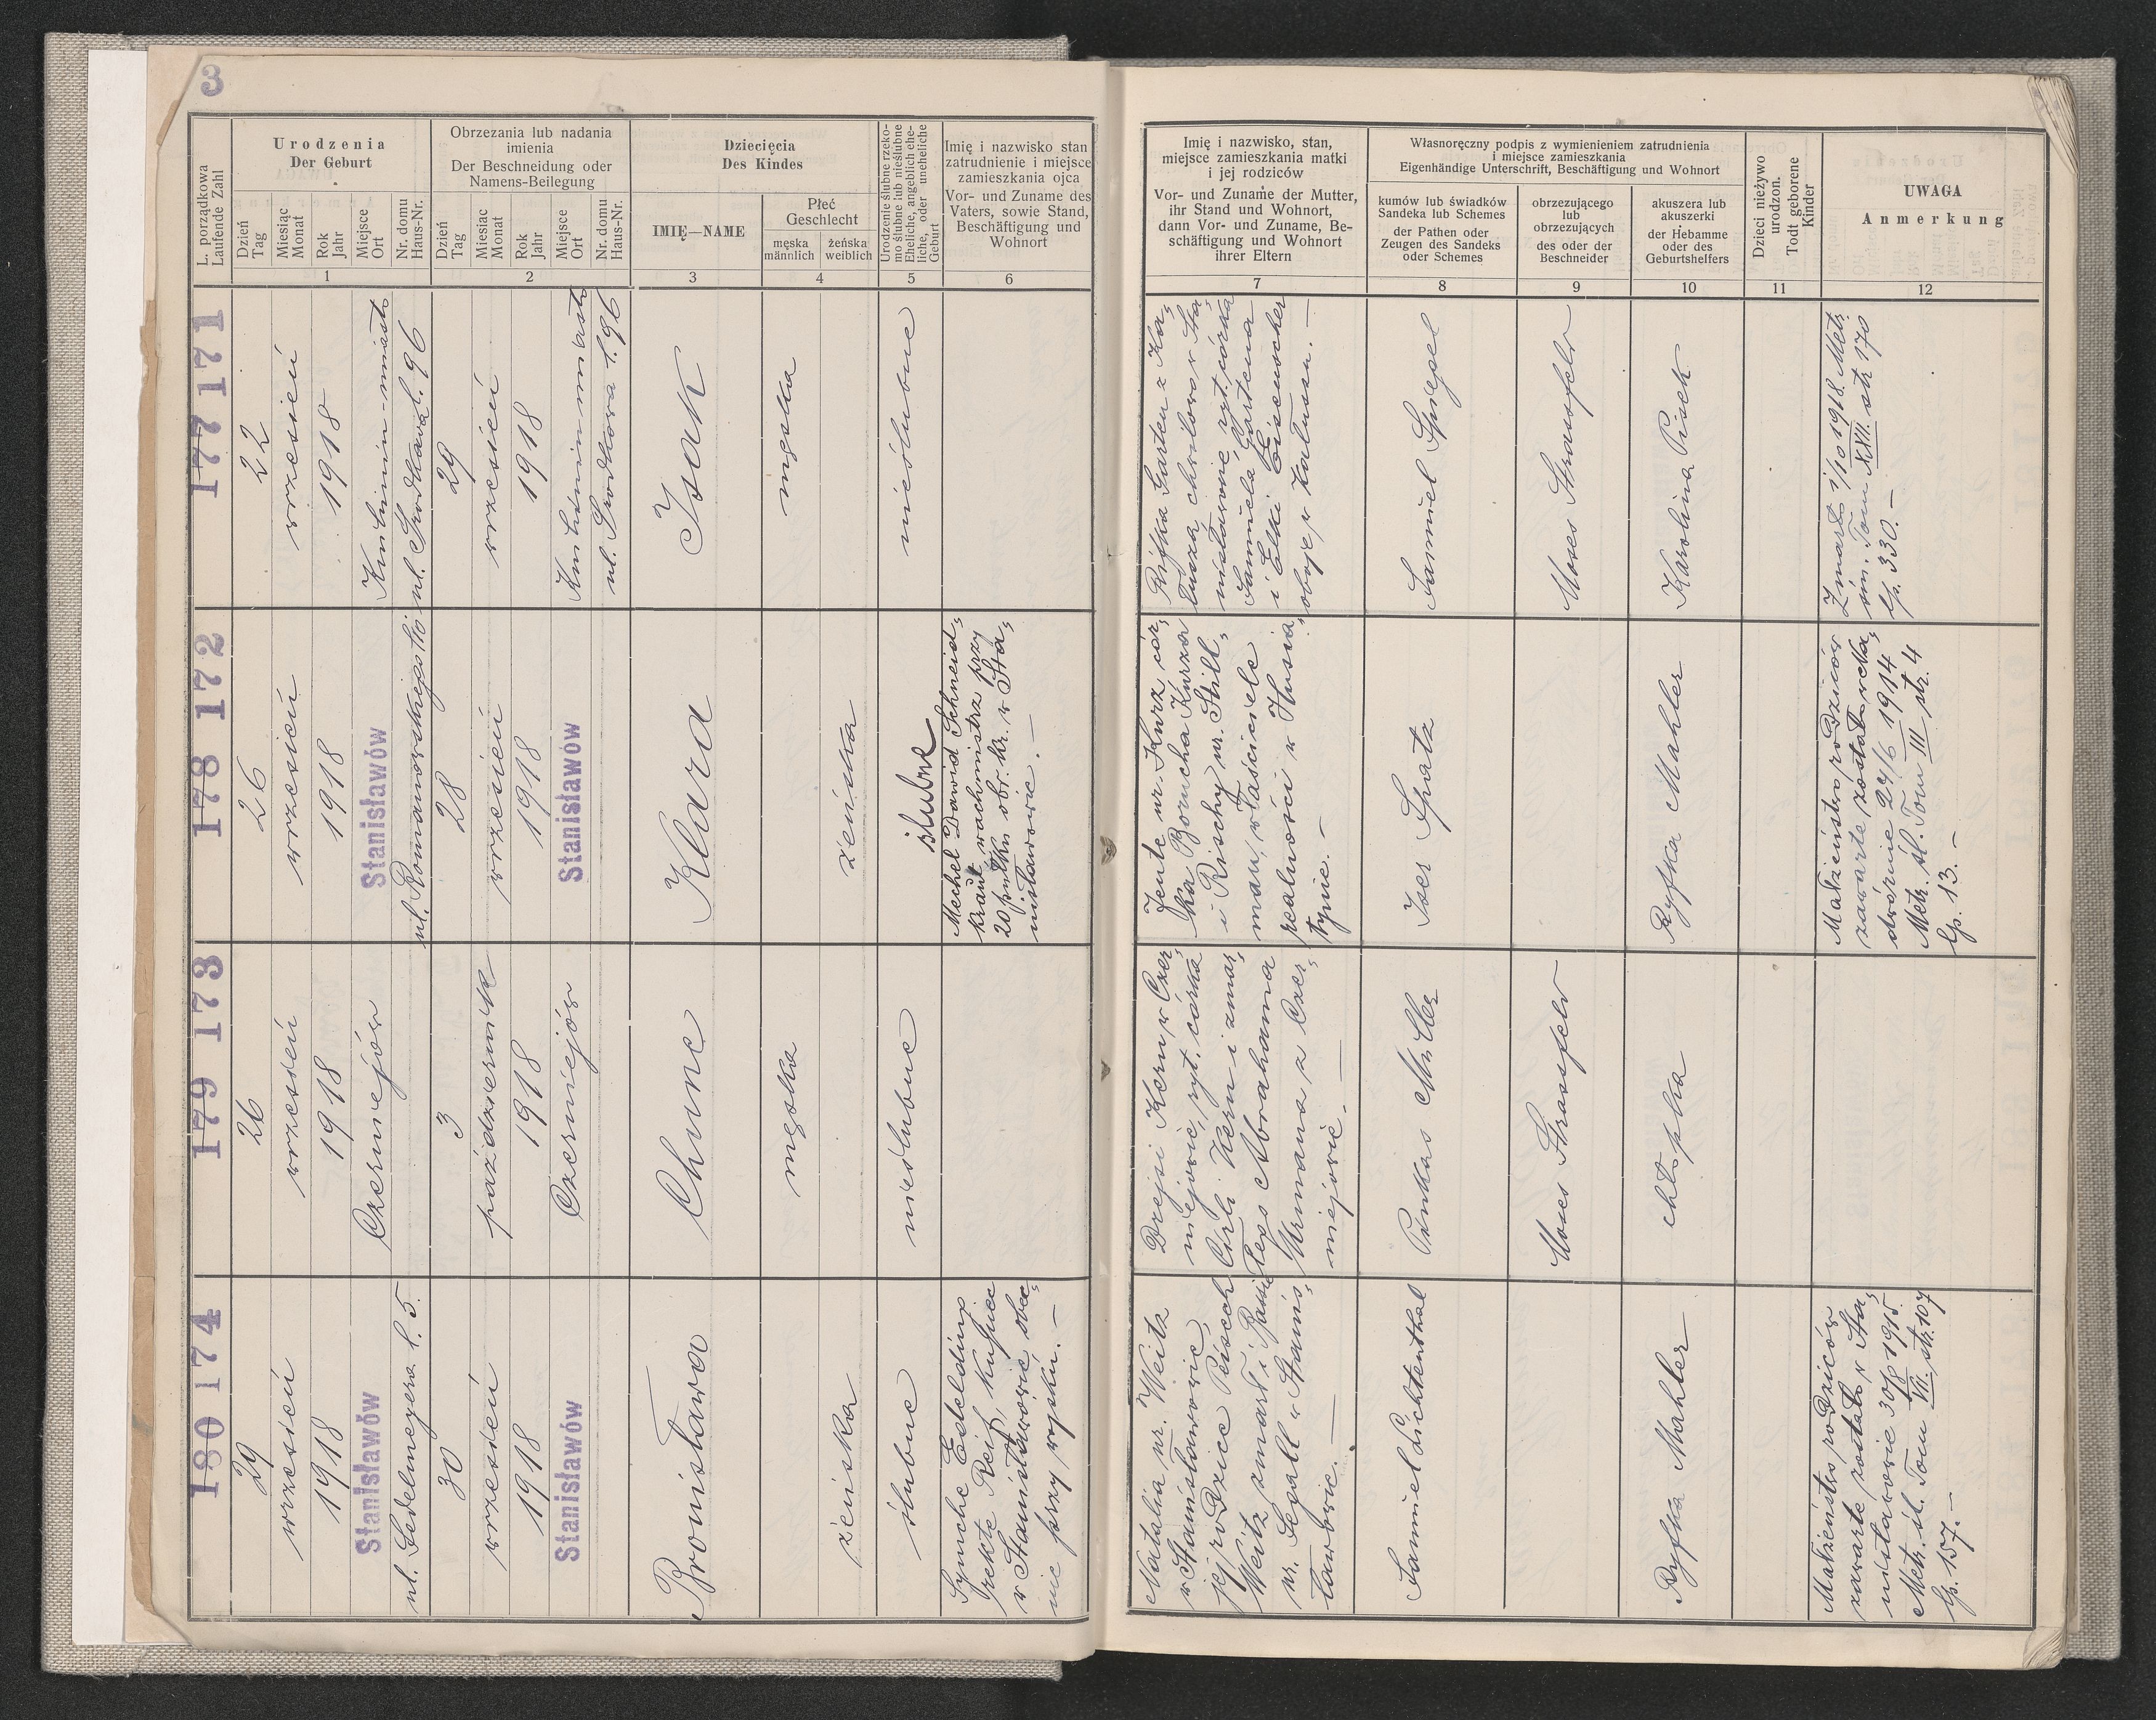 3
L. porządkowa
Laufende Zahl
Urodzenia
Der Geburt
Dzień
Tag
Miesiąc
Monat
Rok
Jahr
Miejsce
Ort
Nr. domu
Haus-Nr.
1
Obrzezania lub nadania
imienia
Der Beschneidung oder
Namens-Beilegung
Dzień
Tag
Miesiac
Monat
Rok
Jahr
Miejsce
Ort
Nr. domu
Haus-Nr.
2
Dziecięcia
Des Kindes
IMIĘ—NAME
3
Płeć
Geschlecht
męska
männlich
żeńska
weiblich
4
Urodzenie ślubne rzeko-
mo ślubne lub nieślubne
Eheliche, angeblich ehe-
liche, oder uneheliche
Geburt
5
Imię i nazwisko stan
zatrudnienie i miejsce
zamieszkania ojca
Vor- und Zuname des
Vaters, sowie Stand,
Beschäftigung und
Wohnort
6
Imię i nazwisko, stan,
miejsce zamieszkania matki
i jej rodziców
Vor- und Zuname der Mutter,
ihr Stand und Wohnort,
dann Vor- und Zuname, Be-
schäftigung und Wohnort
ihrer Eltern
7
Własnoręczny podpis z wymienieniem zatrudnienia
i miejsce zamieszkania
Eigenhändige Unterschrift, Beschäftigung und Wohnort
kumów lub świadków
Sandeka lub Schemes
der Pathen oder
Zeugen des Sandeks
oder Schemes
8
obrzezującego
lub
obrzezujących
des oder der
Beschneider
9
akuszera lub
akuszerki
der Hebamme
oder des
Geburtshelfers
10
Dzieci nieżywo
urodzon.
Todt geborene
Kinder
11
UWAGA
Anmerkung
12
177 171
22
wrzesień
1918
Knihinin-miasto
ul. Środkowa l. 96
29
wrzesień
1918
Knihinin miasto
ul. Środkowa l. 96
Isak
męska
nieślubne
Rifka Garten z Ka-
łusza, chwilowo w Sta-
nisławowie, ryt. córka
Samuela Gartena
i Elki Eisenscher
oboje w Kałuszu. —
Samuel Spiegel
Moses Straussfeld
Karolina Pisek
Zmarło 1/10 1918. Metr.
śm. Tom XVII. str. 170
lp. 330. —
178 172
26
wrzesień
1918
Stanisławów
ul. Romanowskiego
28
wrzesień
1918
Stanisławów
Klara
żeńska
ślubne
Mechel Dawid Schneid-
kraut, wachmistrz przy
20 pułku obr. kr. w Sta-
nisławowie. —
Jente ur. Kurz cór-
ka Borucha Kurza
i Rischy ur. Still-
man, właściciele
realności w Husia-
tynie. —
Iser Spatz
Ryfka Mahler
Małżeństwo rodziców
zawarte zostało w Na-
dwórnie 24/6 1914
Metr. śl. Tom III str. 4
lp. 13. —
179 173
26
wrzesień
1918
Czerniejów
3
październik
1918
Czerniejów
Chune
męska
nieślubne
Drejsi Kern w Czer-
niejowie, ryt. córka
Cirli Kern i zmar-
łego Abrahama
Urmana z Czer-
niejowie. —
Pinkas Miller
Moses Strassfeld
180 174
29
wrzesień
1918
Stanisławów
ul. Gedelmeyera l. 5.
30
wrzesień
1918
Stanisławów
Bronisława
żeńska
ślubne
Symche Edelding
rekte Reif, kupiec
w Stanisławowie, obec-
nie przy wojsku. —
Natalia ur. Weitz
w Stanisławowie,
jej rodzice Peisech
Weitz zmarł i Bassie
ur. Segall w Stanis-
ławowie. —
Samuel Lichtenthal
Ryfka Mahler
Małżeństwo rodziców
zawarte zostało w Sta-
nisławowie 30/8 1915
Metr. śl. Tom VII. str. 107
lp. 157. —